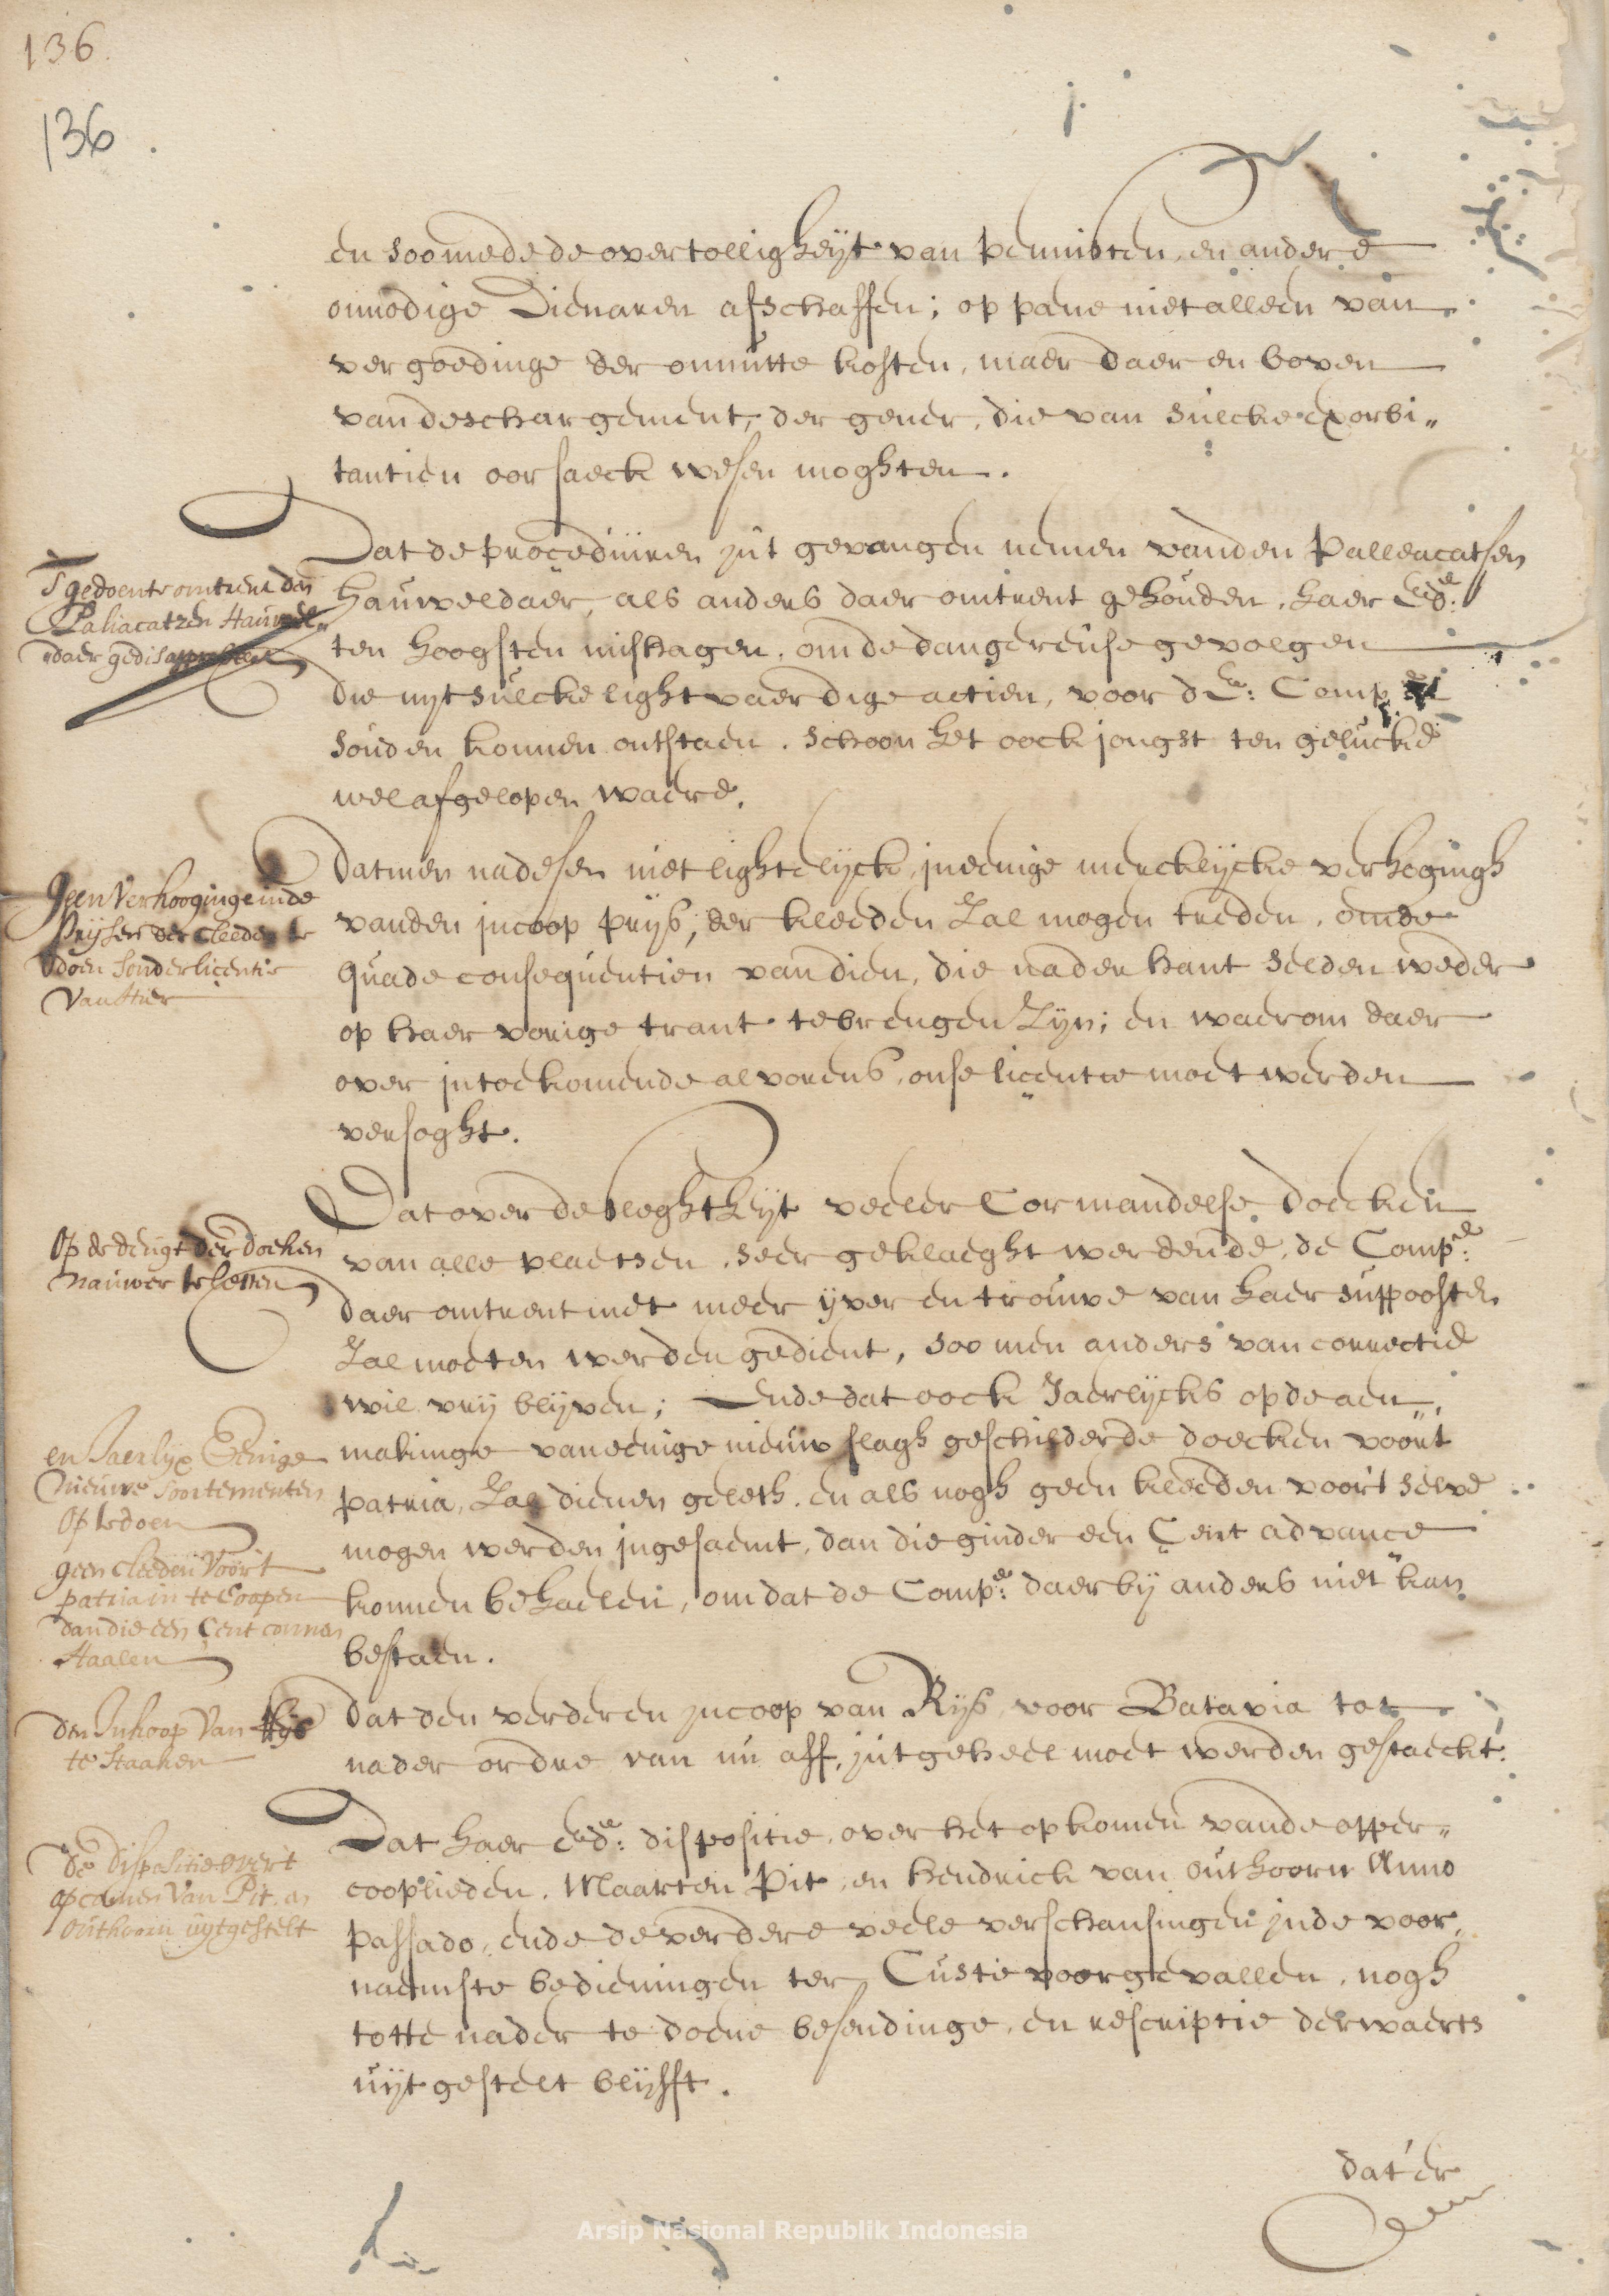 136.
136.
en soo mede de overtolligheyt van pennisten, en andere
onnodige Dienaren afschaffen; op pene niet alleen van
vergoedinge der onnutte kosten, maer daer en boven
van deschargement, der gener, die van sulcke exorbi„
tantien oorsaeck wesen moghten.
T gedoente omtrent den
Paliacatzen Hauwel„
„daer gedisapprobeert
Dat de proceduiren jn't gevangen nemen vanden Palleacatsen
hauweldaer, als anders daer omtrent gehouden, haer Ede:
ten hoogsten mishagen, om de dangereuse gevolgen
die uyt sulcke lightvaerdige actien, voor d'E: Compe
souden konnen ontstaen, schoon het oock jongst ten gelucke
wel afgelopen waere.
Geen Verhooginge inde
Prijsen der Cleeden te
doen sonder licentie
Van Hier
Dat men nadesen niet lightelyck, jn eenige mercklycke verhogingh
vanden jncoop prijs, der kleeden zal mogen treden, om de
quade consequentien van dien, die nader hant selden weder
op haer vorige trant te brengen zyn; en waerom daer
over jn toekomende alvorens, onse licentie moet werden
versoght.
Op de deugt der doeken
nauwer te letten
Dat over de sleghtheyt veeler Cormandelse doecken
van alle plaetsen, seer geklaeght werdende, de Compe:
daer omtrent met meer yver en trouwe van haer suppoosten
Zal moeten werden gedient, soo men anders van correctie
wil vry blyven; Ende dat oock Jaerlycks op de aen„
en Jaerlyx Eenige
nieuwe soortementen
op te doen
makinge van eenige nieuw slagh geschilderde doecken voor't
patria, Zal dienen geleth, en als nogh geen kleeden voor't selve
geen cleeden Voor't
patria in te Coopen
dan die een Cent connen
Haalen
mogen werden jngesaemt, dan die ginder een Cent advance
konnen behaelen, om dat de Compe: daer by anders niet kan
bestaen.
den Inkoop Van Rijs
te Staaken
Dat den verderen jncoop van Rijs, voor Batavia tot
nader ordre van nu aff, jn't geheel moet werden gestaeckt.
De Dispositie over 't
opcomen Van Pit, en
Outhoorn uytgestelt
Dat haer Ede: dispositie, over het opkomen vande opper„
cooplieden, Maarten Pit, en Hendrick van Outhoorn Anno
passado, ende de verdere veele verschansingen jnde voor„
naemste bedieningen ter Custe voorgevallen, nogh
totte nader te doene besendinge, en rescriptie derwaerts
uijtgestelt blyfft.
dat'er
Arsip Nasional Republik Indonesia